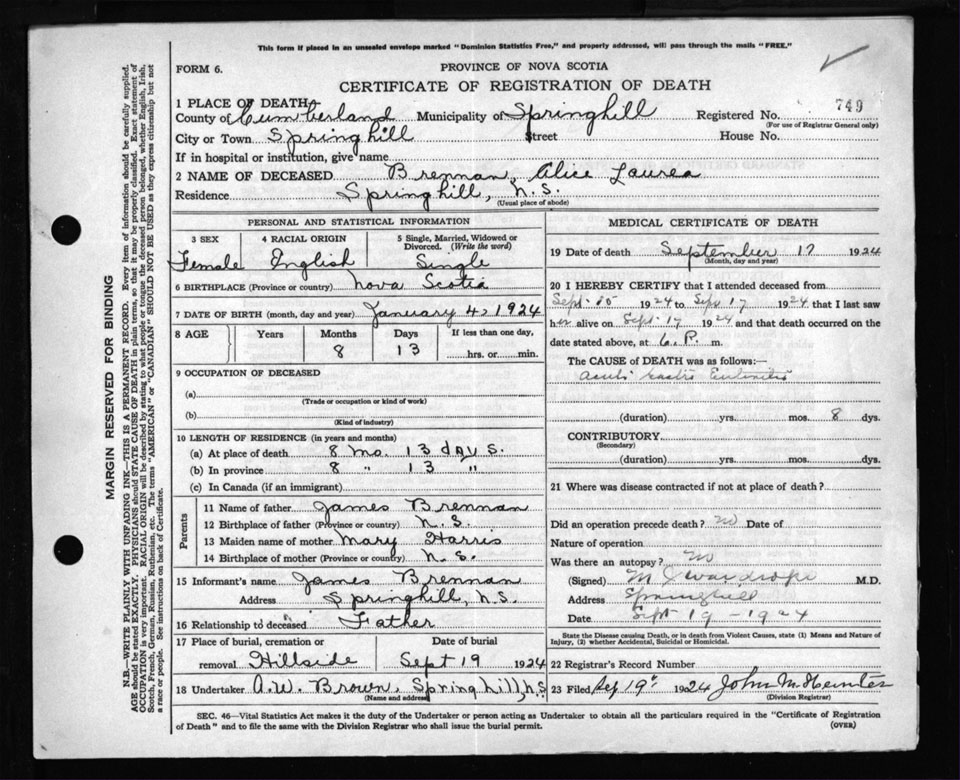 This form if placed in an unsealed envelope marked "Dominion Statistics Free," and properly addressed, will pass through the mails "FREE."
FORM 6.
PROVINCE OF NOVA SCOTIA
CERTIFICATE OF REGISTRATION OF DEATH
749
1 PLACE OF DEATH
County of Cumberland Municipality of Springhill Registered No.
(For use of Registrar General only)
City or Town Springhill Street House No.
If in hospital or institution, give name
2 NAME OF DECEASED Brennan, Alice Laurea
Residence Springhill, N.S.
(Usual place of abode)
PERSONAL AND STATISTICAL INFORMATION
3 SEX 4 RACIAL ORIGIN 5 Single, Married, Widowed or Divorced. (Write the word)
Female English Single
6 BIRTHPLACE (Province or country) Nova Scotia
7 DATE OF BIRTH (month, day and year) January 4, 1924
8 AGE Years Months Days If less than one day,
8 13 hrs. or min.
9 OCCUPATION OF DECEASED
(a)
(Trade or occupation or kind of work)
(b)
(Kind of industry)
10 LENGTH OF RESIDENCE (in years and months)
(a) At place of death 8 mo. 13 days.
(b) In province 8 " 13 "
(c) In Canada (if an immigrant)
Parents
11 Name of father James Brennan
12 Birthplace of father (Province or country) N.S.
13 Maiden name of mother Mary Harris
14 Birthplace of mother (Province or country) N.S.
15 Informant's name James Brennan
Address Springhill, N.S.
16 Relationship to deceased Father
17 Place of burial, cremation or Date of burial
removal Hillside Sept 19 1924
18 Undertaker A.W. Brown, Springhill, N.S.
(Name and address)
MEDICAL CERTIFICATE OF DEATH
19 Date of death September 17 1924
(Month, day and year)
20 I HEREBY CERTIFY that I attended deceased from
Sept 1924 to Sept 17 1924 that I last saw
her alive on Sept 17 1924 and that death occurred on the
date stated above, at 6. P. m.
The CAUSE OF DEATH was as follows:—
Acute Gastro Enteritis
(duration) yrs. mos. 8 dys.
CONTRIBUTORY
(Secondary)
(duration) yrs. mos. dys.
21 Where was disease contracted if not at place of death?
Did an operation precede death? no Date of
Nature of operation
Was there an autopsy? no
(Signed) Wardrope M.D.
Address Springhill
Date Sept 19 - 1924
State the Disease causing Death, or in death from Violent Causes, state (1) Means and Nature of
Injury, (2) whether Accidental, Suicidal or Homicidal.
22 Registrar's Record Number
23 Filed Sep 19th 1924 John M. Hunter
(Division Registrar)
SEC. 46—Vital Statistics Act makes it the duty of the Undertaker or person acting as Undertaker to obtain all the particulars required in the "Certificate of Registration
of Death" and to file the same with the Division Registrar who shall issue the burial permit. (OVER)
MARGIN RESERVED FOR BINDING
N.B.—WRITE PLAINLY WITH UNFADING INK—THIS IS A PERMANENT RECORD. Every item of information should be carefully supplied.
AGE should be stated EXACTLY. PHYSICIANS should STATE CAUSE OF DEATH in plain terms, so that it may be properly classified. Exact statement of
OCCUPATION is very important. RACIAL ORIGIN will be described by stating to what people or tongue the deceased person belonged, whether English, Irish,
Scotch, French, German, Russian, Ruthenian, etc. The terms "AMERICAN" or "CANADIAN" SHOULD NOT BE USED as they express citizenship but not
a race or people. See instructions on back of Certificate.